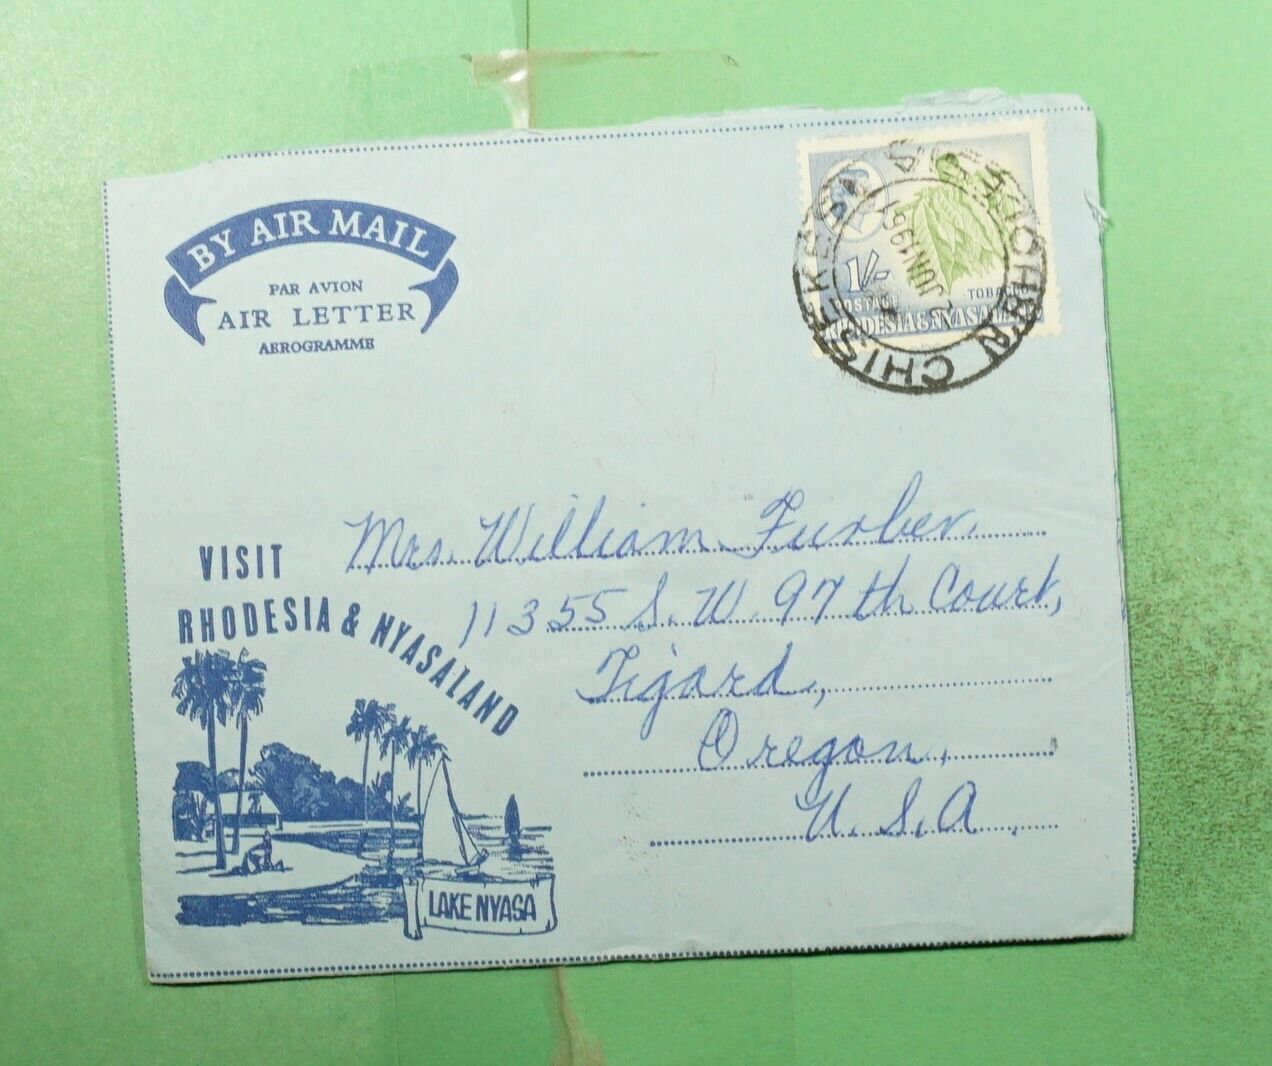 BY AIR MAIL
PAR AVION
AIR LETTER
AEROGRAMME
1/-
POSTAGE
TOBACCO
RHODESIA & NYASALAND
JUN 1961
VISIT
RHODESIA & NYASALAND
LAKE NYASA
Mrs. William Furber.
11355 S. W. 97th Court,
Tigard,
Oregon,
U. S. A.